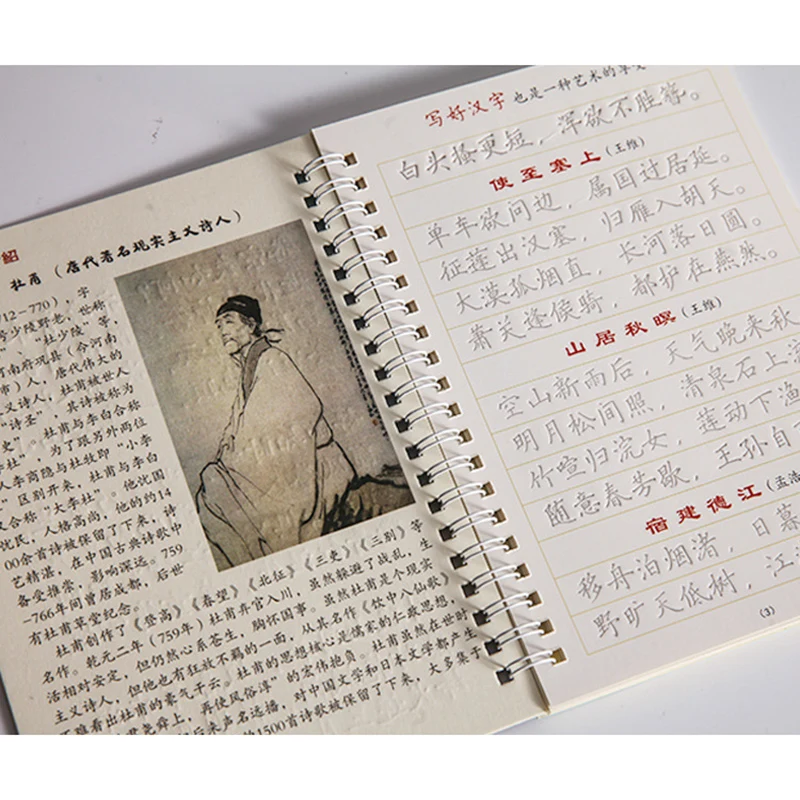 绍
杜甫（唐代著名现实主义诗人）
712-770），字
号少陵野老，世称
、“杜少陵”等，
河南府巩县（今河南
市）人，唐代伟大的
义诗人，杜甫被世人
“诗圣”，其诗被称为
史”。杜甫与李白合称
杜”，为了跟另外两位
人李商隐与杜牧即“小李
”区别开来，杜甫与李白
又合称“大李杜”。他忧国
忧民，人格高尚，他的约14
00余首诗被保留了下来，诗
艺精湛，在中国古典诗歌中
备受推崇，影响深远。759
-766年间曾居成都，后世
有杜甫草堂纪念。
杜甫创作了《登高》《春望》《北征》《三吏》《三别》等
名作。乾元二年（759年）杜甫弃官入川，虽然躲避了战乱，生
活相对安定，但仍然心系苍生，胸怀国事。虽然杜甫是个现实
主义诗人，但他也有狂放不羁的一面，从其名作《饮中八仙歌》
不难看出杜甫的豪气干云。杜甫的思想核心是儒家的仁政思想，
君尧舜上，再使风俗淳”的宏伟抱负。杜甫虽然在世时
后来声名远播，对中国文学和日本文学都产生
1500首诗歌被保留了下来，大多集于
写好汉字 也是一种艺术的享受
白头搔更短，浑欲不胜簪。
使至塞上（王维）
单车欲问边，属国过居延。
征莲出汉塞，归雁入胡天。
大漠孤烟直，长河落日圆。
萧关逢候骑，都护在燕然。
山居秋暝（王维）
空山新雨后，天气晚来秋
明月松间照，清泉石上
竹喧归浣女，莲动下渔
随意春芳歇，王孙自
宿建德江（孟浩
移舟泊烟渚，日暮
野旷天低树，江
（3）